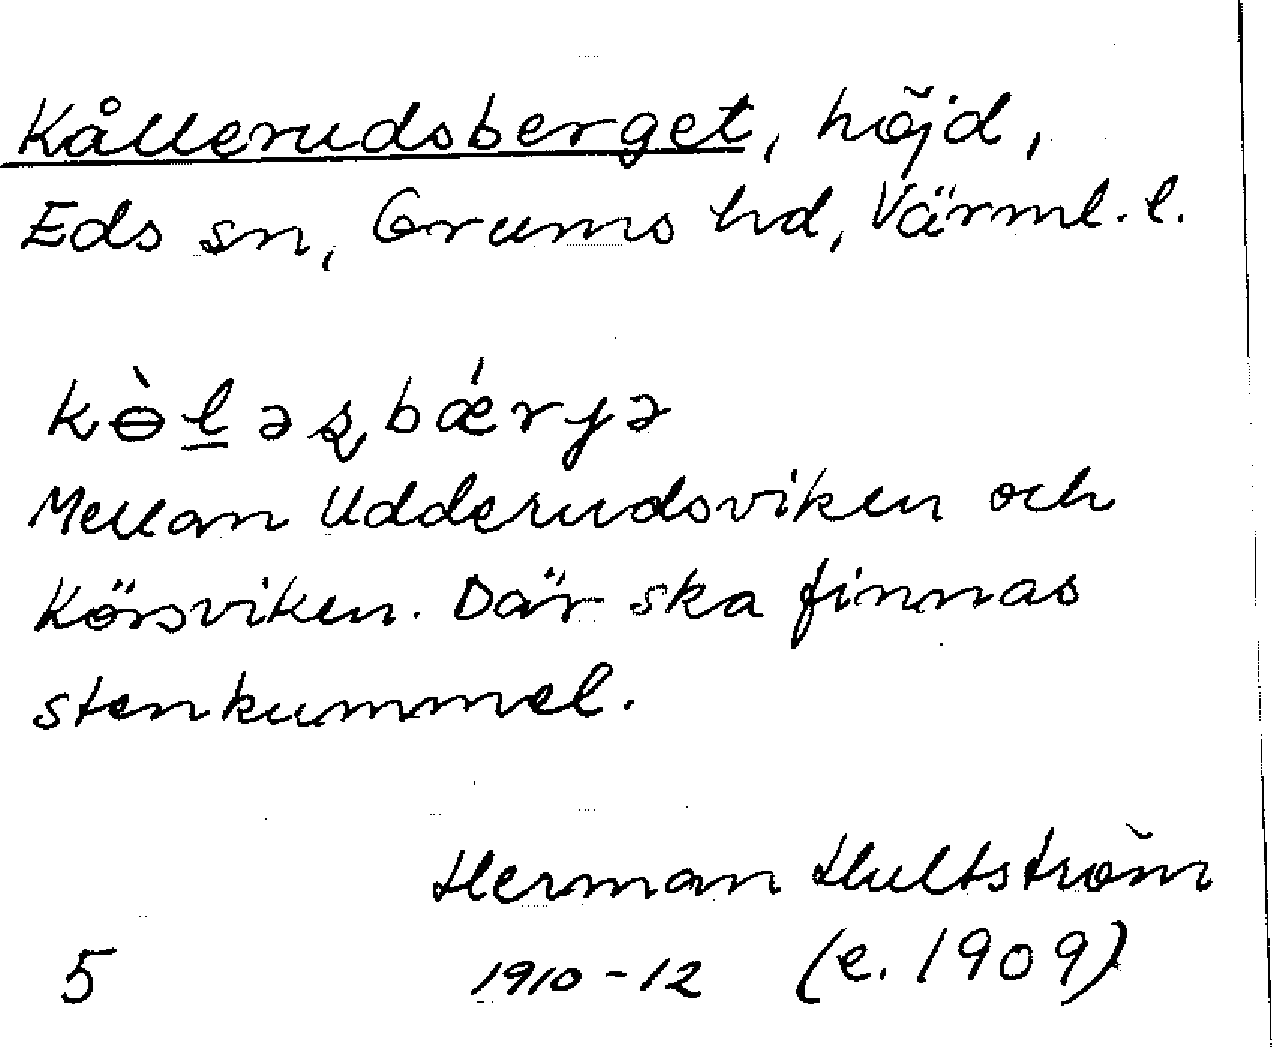 Kållerudsberget, höjd,
Eds sn, Grums hd, Värml. l.
kɵ̀l̲əʂbǽrjə
Mellan Udderudsviken och
Körsviken. Där ska finnas
stenkummel.
Herman Hultström
5 1910-12 (e. 1909)